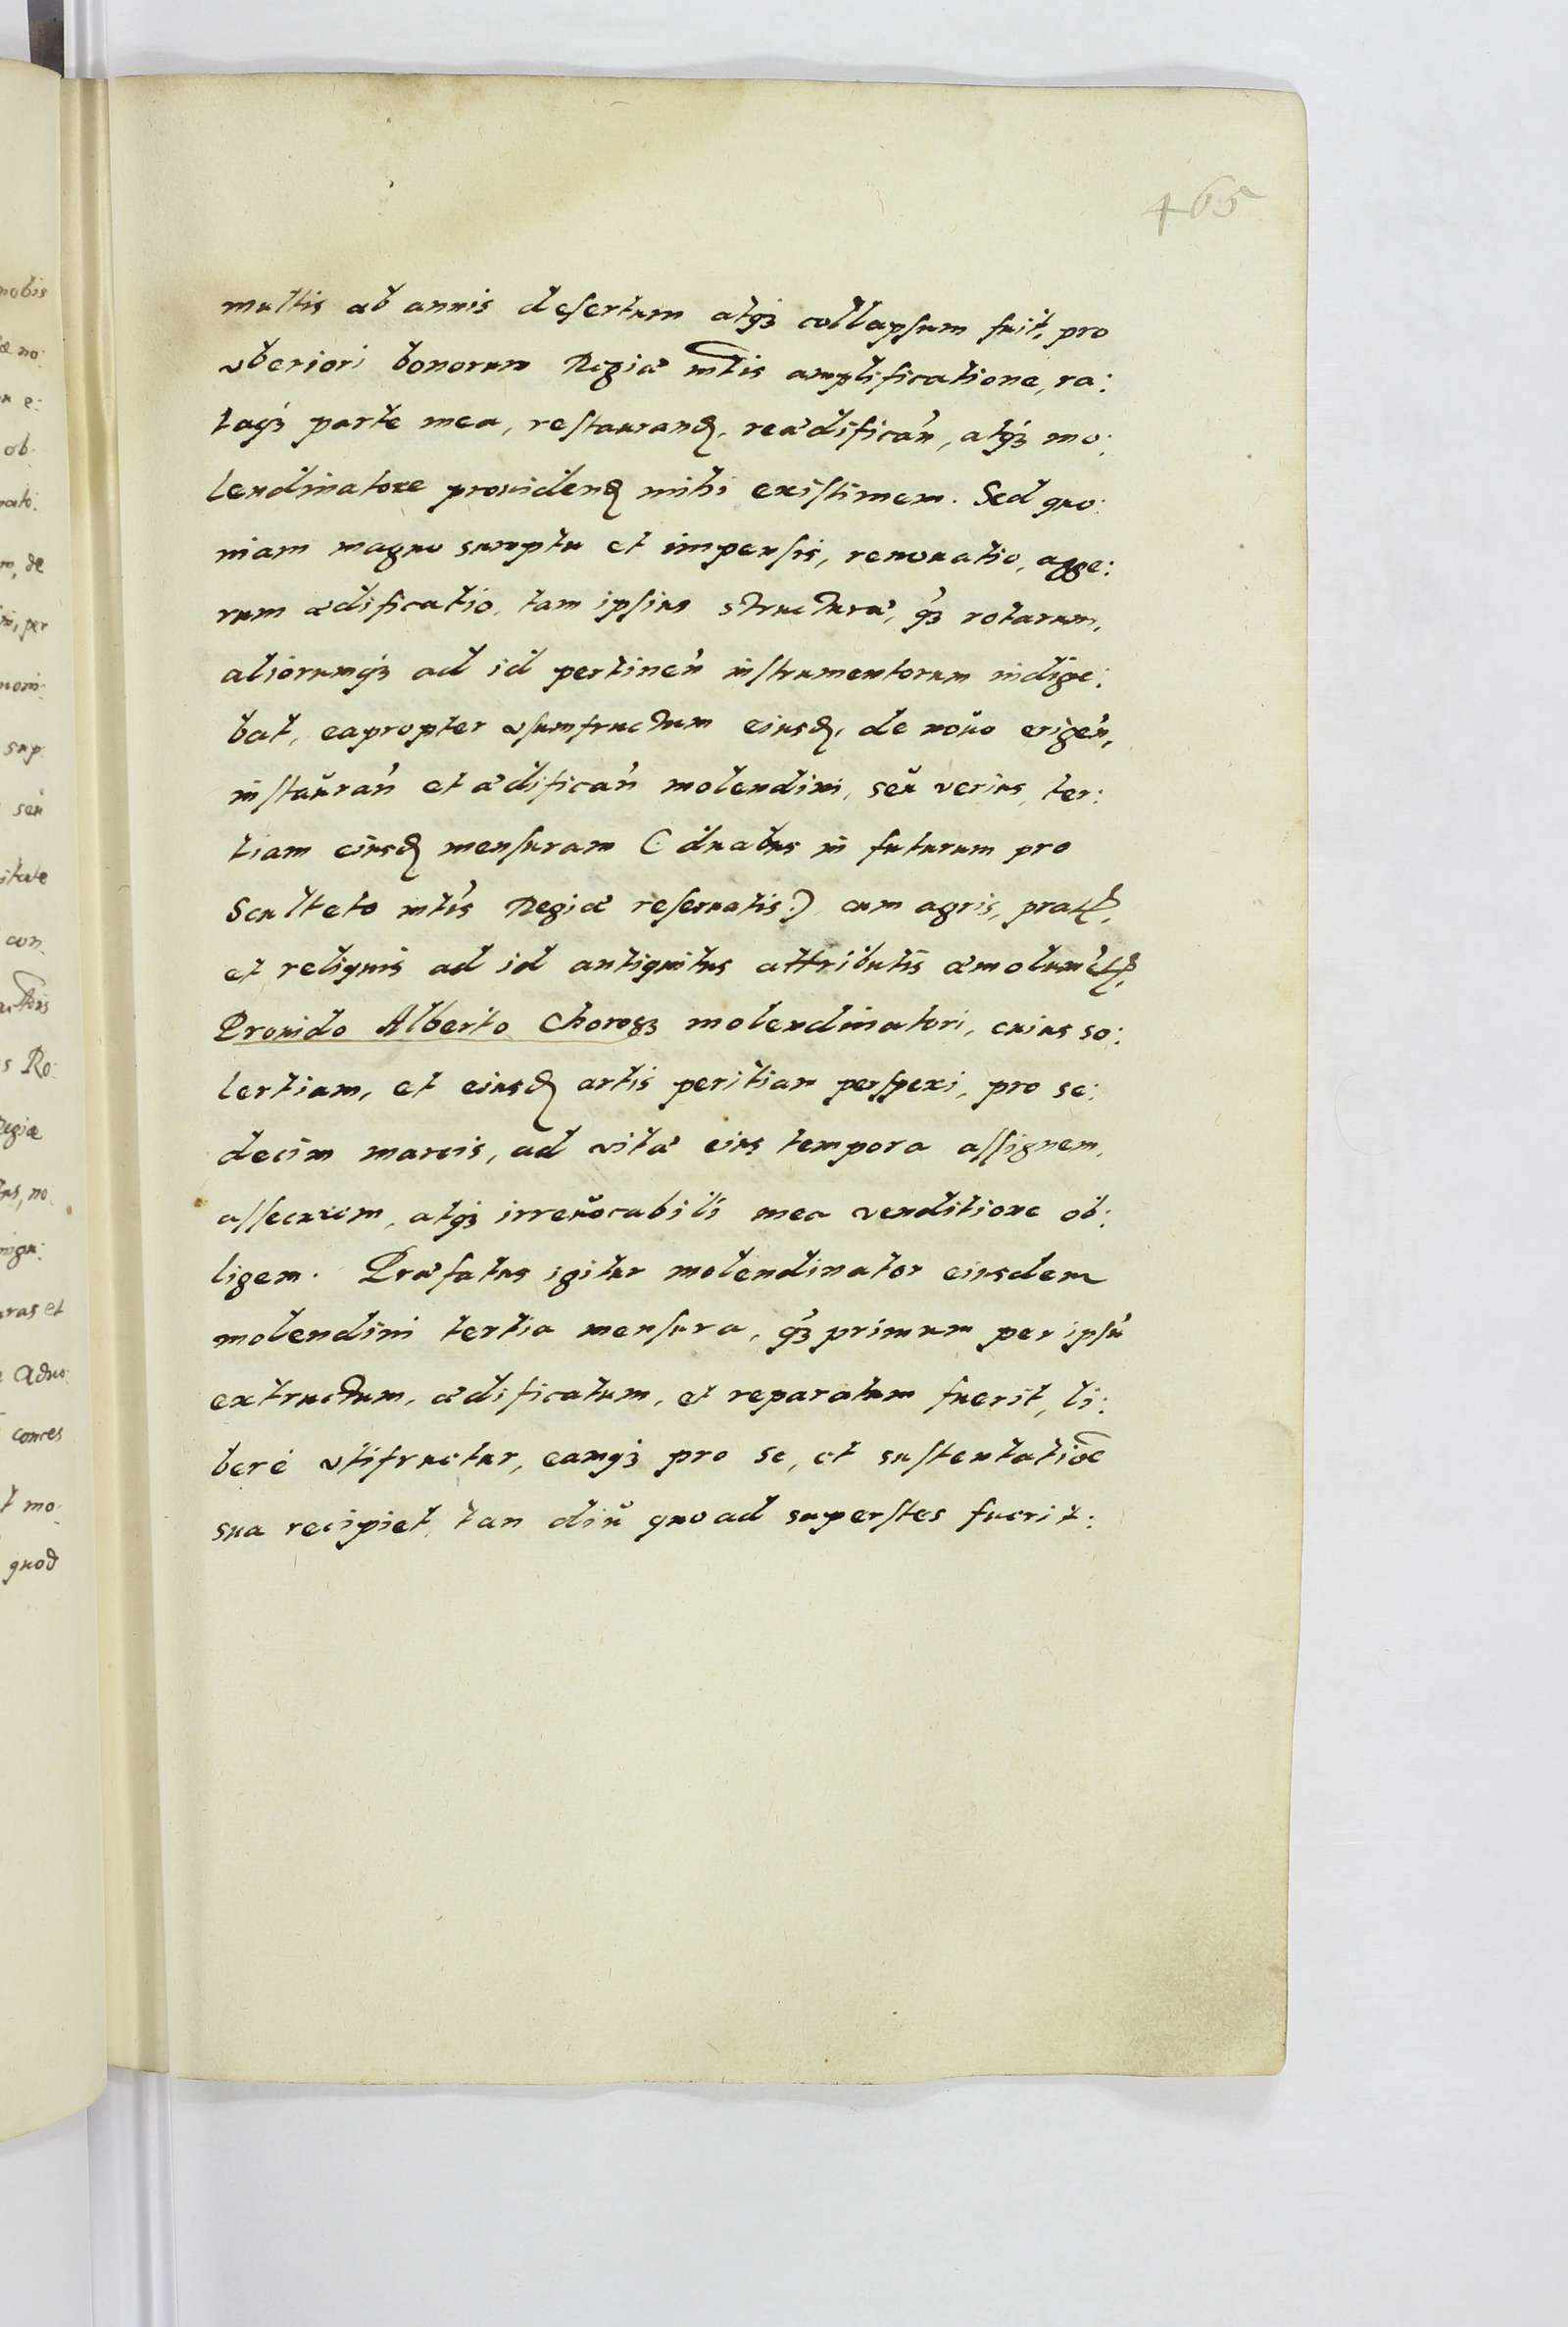 465
multis ab annis desertum atqȝ collapsum fuit, pro
vberiori bonorum Regiæ mtis amplificatione, ra:
taqȝ parte mea, restaurand, reædifican, atqȝ mo:
lendinatore prouidend mihi existimem. Sed quo:
niam magno sumptu et impensis, renouatio, agge:
rum ædificatio, tam ipsius structuræ, qȝ rotarum,
aliorumqȝ ad id pertinen instrumentorum indige:
bat, eapropter vsumfructum eiusd, de nouo erigen,
instauran et ædifican molendini, seu verius ter:
tiam eiusd mensuram (: duabus in futurum pro
Sculteto mtis Regiæ reseruatis :) cum agris, prat,
et reliquis ad id antiquitus attributis æmolument,
Prouido Alberto Chorogȝ molendinatori, cuius so:
lertiam, et eiusd artis peritiam perspexi, pro se:
decim marcis, ad vitæ eius tempora assignem,
assecurem, atqȝ irreuocabili mea venditione ob:
ligem. Præfatus igitur molendinator eiusdem
molendini tertia mensura, qȝ primum per ipsu
extructum, ædificatum, et reparatum fuerit, li:
berè vtifruetur, eamqȝ pro se, et sustentatioe
sua recipiet tan diu quoad superstes fuerit:
nobis
æ no:
ob:
m, de
per
sup:
seu
con
s Ro:
Regiæ
uras et
t mo:
quod